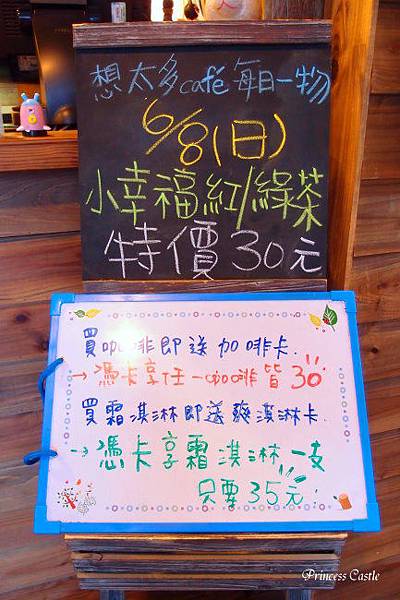 想太多café每日一物
6/8(日)
小幸福紅/綠茶
特價30元
買咖啡即送咖啡卡.
→憑卡享任一咖啡皆30
買霜淇淋即送爽淇淋卡.
→憑卡享霜淇淋一支
只要35元!
Princess Castle